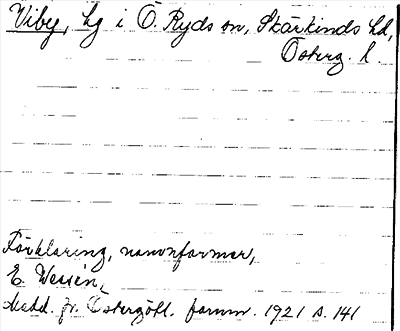 Viby, hg i Ö. Ryds sn, Skärkinds hd,
Österg. l.
Förklaring, namnformer,
E. Wessén,
Medd. fr. Östergötl. fornm. 1921 s. 141